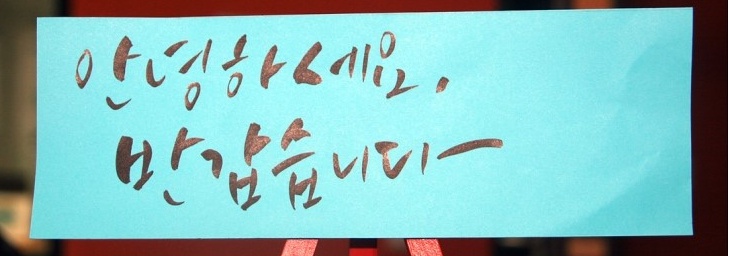 안녕하세요.
반갑습니다~